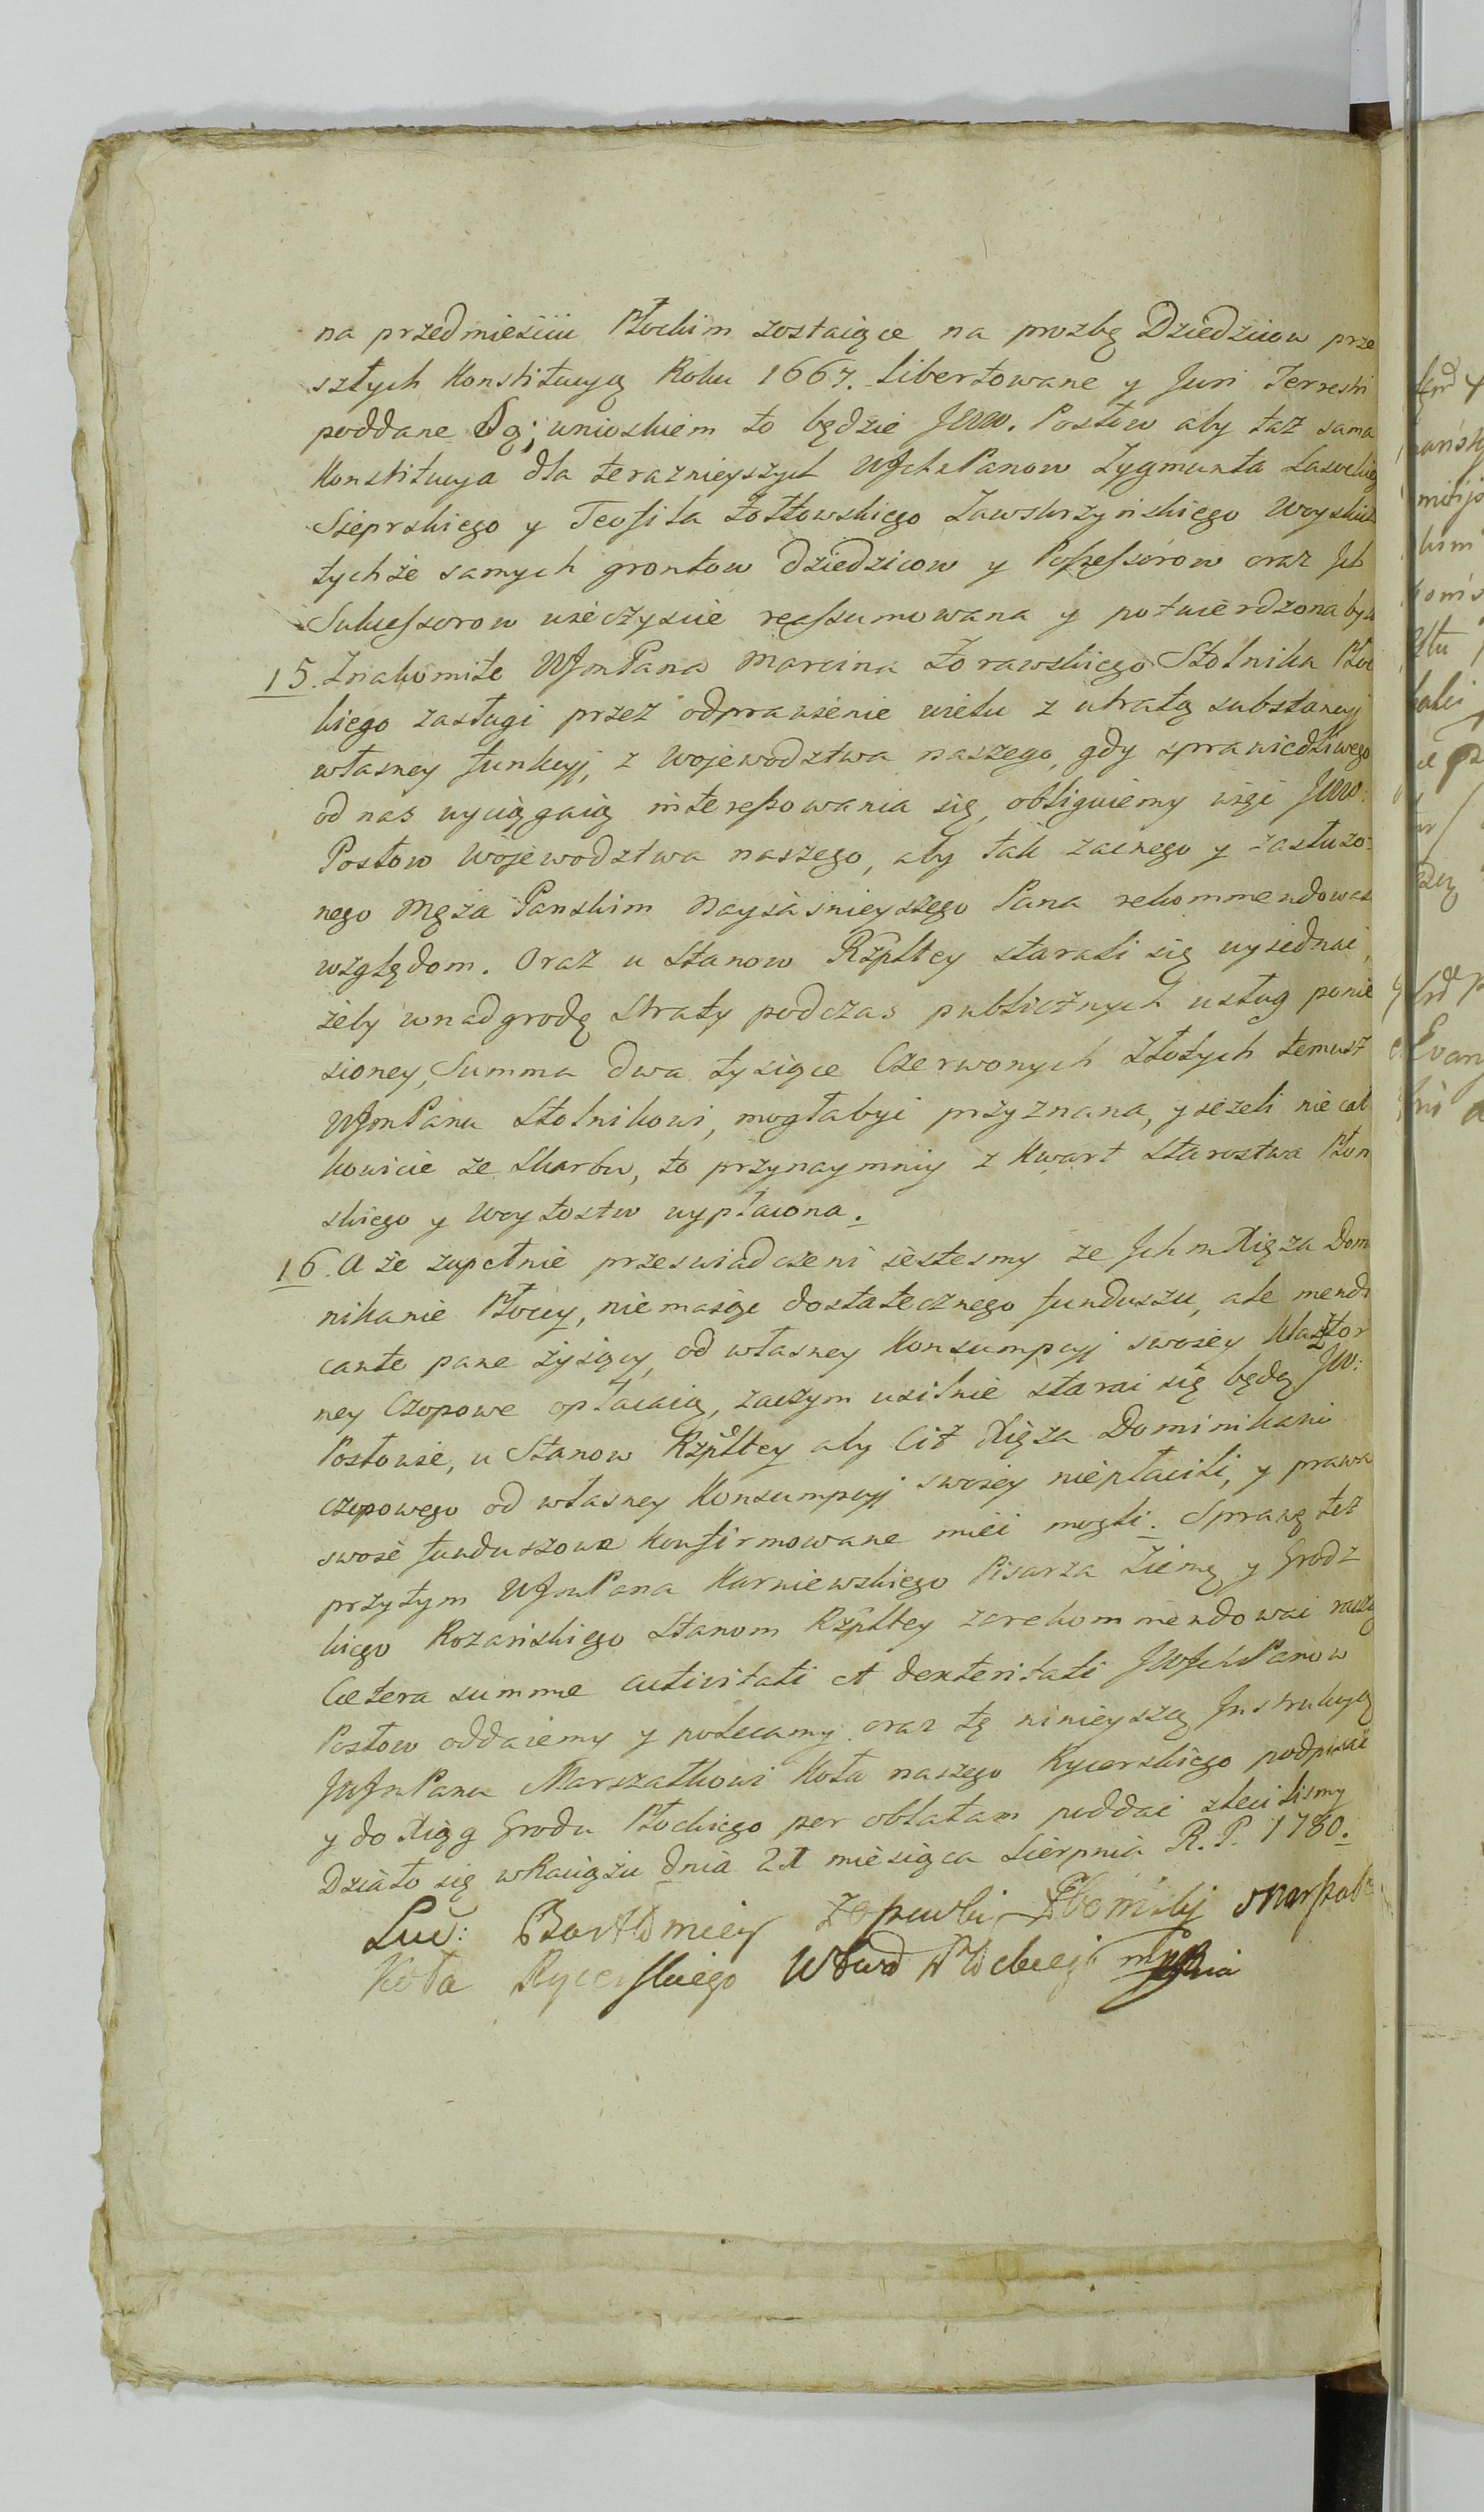 na przedmieściu Płockim zostaiące na prozbę Dziedzicow prze
szłych Konstitucyą Roku 1667. libertowane y Juri Terrestri
poddane są; unioskiem to będzie JWW. Posłow aby taż sama
Konstitucya dla teraznieyszych WJchPanow Zygmunta Lasockieg
Sieprskiego y Teofila Żołtowskiego Zawskrzyńskiego Woyskich
tychże samych grontow Dziedzicow y Possessorow oraz Jch
Sukcessorow wieczyscie reassumowana y potwierdzona był
15. Znakomite WJmPana Marcina Żorawskiego Stolnika Płoc
kiego zasługi przez odprawienie wielu z utratą substancyj
własney funkcyj, z Wojewodztwa naszego, gdy sprawiedliwego
od nas wyciągaią interessowania się, obliguiemy więc JWW:
Posłow Wojewodztwa naszego, aby tak zacnego y zasłużo-
nego Męża Panskim Nayiasnieyszego Pana rekommendowac
względom. Oraz u Stanow Rzpltey starali się wyiednać,
żeby wnadgrodę straty podczas publicznych usług ponie
sioney, Summa dwa tysiące Czerwonych Złotych temusz
WJmPanu Stolnikowi, mogłabyć przyznana, y ieżeli nie cał
kowicie ze Skarbu, to przynaymniy z Kwart Starostwa Płon
skiego y Woytostw wypłacona.
16. A że zupełnie przeswiadczeni iestesmy że Jchm Xięża Domi
nikanie Płoccy, niemaiąc dostatecznego funduszu, ale mendi
cante pane żyiący, od własney Konsumpcyj swoiey Klasztor
ney Czopowe opłacaią, zaczym usilnie starać się będą JW:
Posłowie, u Stanow Rzpltey aby Ciż Xięża Dominikani
czopowego od własney Konsumpcyj swoiey niepłacili, y prawa
swoie funduszowe konfirmowane mieć mogli. Sprawę też
przytym WJmPana Karniewskiego Pisarza Ziemg y Grodz
kiego Rożańskiego Stanom Rzpltey zarekommendować raczą
Cætera summæ activitati et dexteritati JWJchPanow
Posłow oddaiemy y polecamy. oraz tę ninieyszą Jnstrukcyą
JWJmPanu Marszałkowi Koła naszego Rycerskiego podpisać
y do Xiąg Grodu Płockiego per oblatam poddać zleciliśmy
Działo się wRaciążu dnia 21 miesiąca Sierpnia R. P. 1780.
Bartłomiey
Koła Rycerskiego Wdwa Płockiego mp